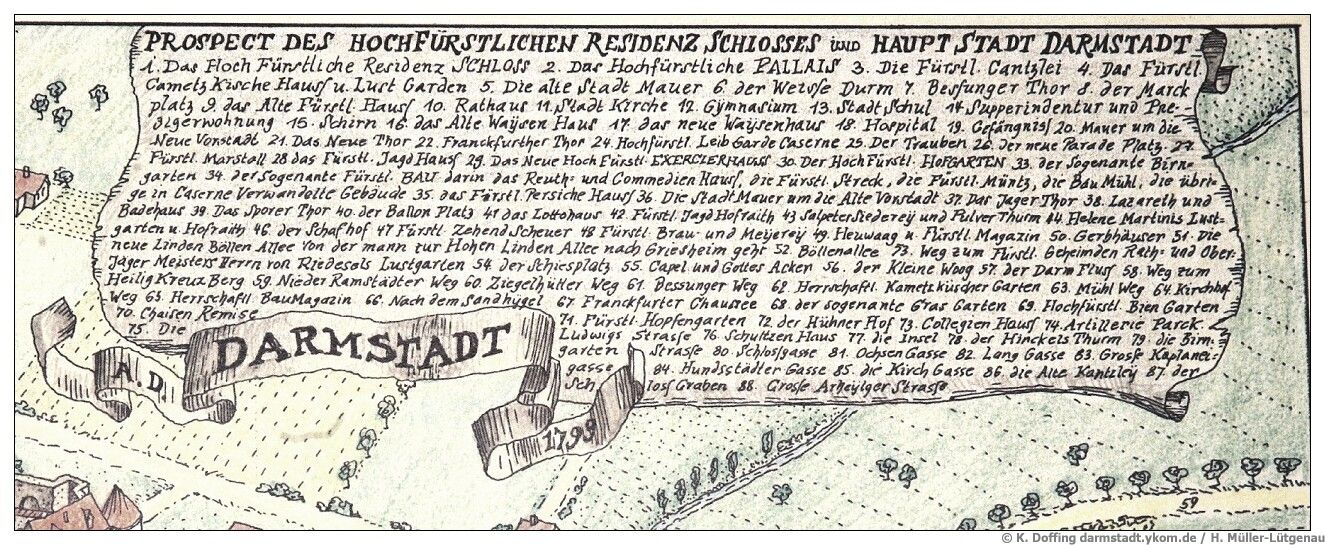 PROSPECT DES HOCHFÜRSTLICHEN RESIDENZ SCHLOSSES UND HAUPT STADT DARMSTADT
1. Das Hoch Fürstliche Residenz SCHLOSS 2. Das Hochfürstliche PALLAIS 3. Die Fürstl. Cantzlei 4. Das Fürstl.
Cametzkische Hauss u. Lust Garden 5. Die alte Stadt Mauer 6. der Weisse Durm 7. Bessunger Thor 8. der Marck
platz 9. das Alte Fürstl. Hauss 10. Rathaus 11. Stadt Kirche 12. Gymnasium 13. Stadt Schul 14 Supperindentur und Pre-
digerwohnung 15. Schirn 16. das Alte Waÿsen Haus 17. das neue Waÿsenhaus 18. Hospital 19. Gefängniss 20. Mauer um die
Neue Vorstadt 21. Das Neue Thor 22. Franckfurther Thor 24. Hochfürstl. Leib Garde Caserne 25. Der Trauben 26. der neue Parade Platz. 27.
Fürstl. Marstall 28 das Fürstl. Jagd Hauss 29. Das Neue Hoch Fürstl. EXERCIERHAUSS 30. Der Hoch Fürstl. HOFGARTEN 33. der Sogenante Birn-
garten 34. der Sogenante Fürstl. BAU darin das Reuth- und Commedien Hauss, die Fürstl. Streck, die Fürstl. Müntz, die Bau Mühl, die übri-
ge in Caserne Verwandolte Gebäude 35. das Fürstl. Persiche Hauss 36. Die Stadt Mauer um die Alte Vorstadt 37. Das Jäger Thor 38. Lazareth und
Badehaus 39. Das Sporer Thor 40. der Ballon Platz 41 das Lottohaus 42. Fürstl. Jagd Hofraith 43 Salpeter Siedereÿ und Pulver Thurm 44. Helene Martinis Lust-
garten u. Hofraith 46 der Schafhof 47 Fürstl. Zehend Scheuer 48 Fürstl. Brau- und Meÿereÿ 49. Heuwaag u. Fürstl. Magazin 50. Gerbhäuser 51. Die
neue Linden Böllen Allee Von der mann zur Hohen Linden Allee nach Griesheim geht 52. Böllenallee 73. Weg zum Fürstl. Geheimden Rath- und Ober-
Jäger Meisters Herrn von Riedesels Lustgarten 54. der Schiesplatz 55. Capel und Gottes Acker 56. der Kleine Woog 57. der Darm Fluss 58. Weg zum
Heilig Kreuz Berg 59. Nieder Ramstädter Weg 60. Ziegelhütter Weg 61. Bessunger Weg 62. Herrschaftl. Kametzkiischer Garten 63. Mühl Weg 64. Kirchhof
Weg 65. Herrschaftl. Bau Magazin 66. Nach dem Sandhügel 67 Franckfurter Chaussee 68. der sogenante Gras Garten 69. Hochfürstl. Bien Garten
70. Chaisen Remise 71. Fürstl. Hopfengarten 72. der Hühner Hof 73. Collegien Hauss 74. Artillerie Parck.
75. Die Ludwigs Strasse 76. Schultzen Haus 77. die Insel 78. der Hinckels Thurm 79. die Birn-
garten Strasse 80. Schlossgasse 81. Ochsen Gasse 82. Lang Gasse 83. Grosse Kaplanei-
gasse 84. Hundsstädter Gasse 85. die Kirch Gasse 86. die Alte Kantzleÿ 87. der
Schloss Graben 88. Grosse Arheylger Strasse
A.D. DARMSTADT 1799
59
© K. Doffing darmstadt.ykom.de / H. Müller-Lütgenau